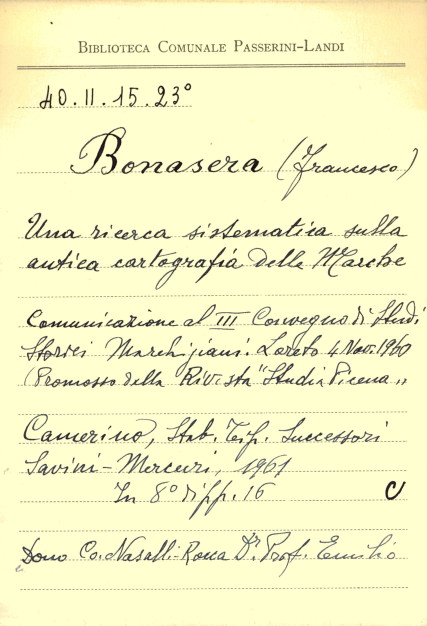 BIBLIOTECA COMUNALE PASSERINI-LANDI
40.II.15.23°
Bonasera (Francesco)
Una ricerca sistematica sulla
antica cartografia delle Marche
Comunicazione al III Convegno di Studi
Storici Marchigiani. Loreto 4 Nov. 1960
(Promosso dalla Rivista "Studia Picena"
Camerino, Stab. Tip. Successori
Savini-Mercuri, 1961
In 8° di pp. 16 C
Dono Co. Nasalli-Rocca Dr. Prof. Emilio